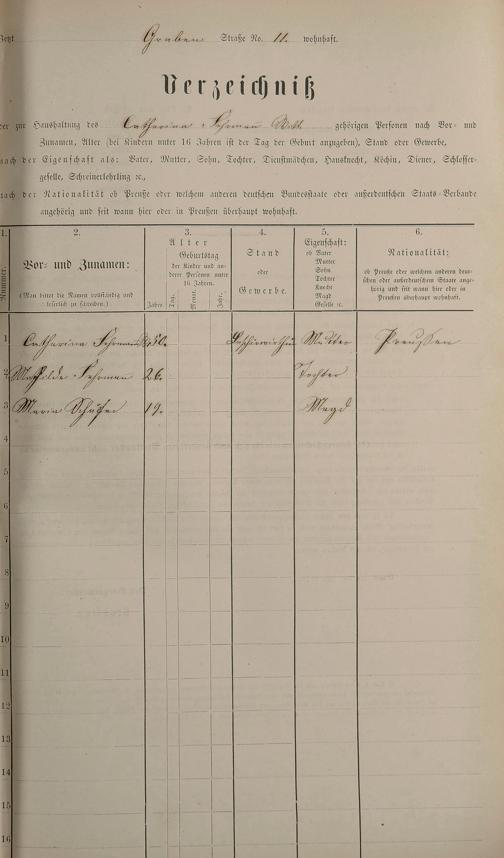 Jetzt Graben Straße No. 11. wohnhaft.
Verzeichniß
der zur Haushaltung des Catharina Fehrman Witt gehörigen Personen nach Vor- und
Zunamen, Alter (bei Kindern unter 16 Jahren ist der Tag der Geburt anzugeben), Stand oder Gewerbe,
nach der Eigenschaft als: Vater, Mutter, Sohn, Tochter, Dienstmädchen, Hausknecht, Köchin, Diener, Schlosser-
geselle, Schreinerlehrling ꝛc.,
nach der Nationalität ob Preuße oder welchem anderen deutschen Bundesstaate oder außerdeutschen Staats-Verbande
angehörig und seit wann hier oder in Preußen überhaupt wohnhaft.
1. 2. 3. 4. 5. 6.
Nummer.
Vor- und Zunamen:
(Man bittet die Namen vollständig und
leserlich zu schreiben.)
Alter
Geburtstag
der Kinder und an-
derer Personen unter
16 Jahren.
Jahre. Tag. Monat. Jahr.
Stand
oder
Gewerbe.
Eigenschaft:
ob Vater
Mutter
Sohn
Tochter
Knecht
Magd
Geselle ꝛc.
Nationalität:
ob Preuße oder welchem anderen deut-
schen oder außerdeutschen Staate ange-
hörig und seit wann hier oder in
Preußen überhaupt wohnhaft.
1 Catharina Fehrman 50. Mutter Preußen
2 Mathilde Fehrman 26. Tochter
3 Maria Schäfer 19. Magd
4
5
6
7
8
9
10
11
12
13
14
15
16